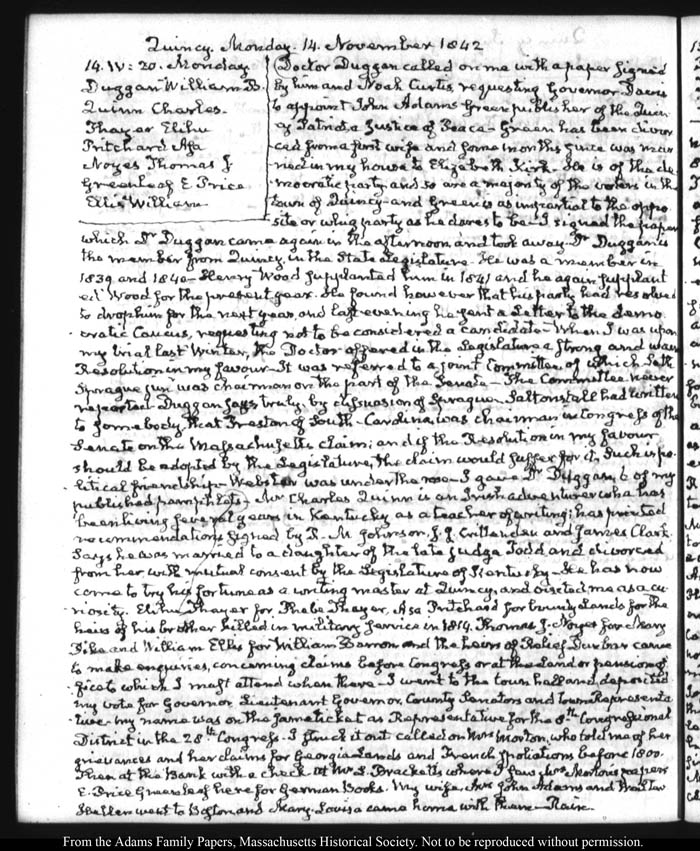 Quincy. Monday. 14. November 1842
14. IV: 20. Monday
Duggan William B.
Quinn Charles.
Thayer Elihu
Pritchard Asa
Noyes Thomas J.
Greenleaf E. Price
Ellis William
Doctor Duggan called on me with a paper signed
by him and Noah Curtis, requesting Governor Davis
to appoint John Adams Green publisher of the Quin-
cy Patriot a Justice of Peace - Green has been divor
ced from a first wife and some months since was mar
ried in my house to Elizabeth Kirk. He is of the de-
mocratic party and so are a majority of the voters in the
town of Quincy - and Green is as impartial to the oppo
site or whig party as he dares to be - I signed the paper
which Dr Duggan came again in the afternoon and took away. Dr Duggan is
the member from Quincy, in the State Legislature. He was a member in
1839 and 1840 - Henry Wood supplanted him in 1841 and he again supplant
ed Wood for the present year. He found however that his party had resolved
to drop him for the next year, and last evening he sent a Letter to the demo
cratic Caucus, requesting not to be considered a candidate - When I was upon
my trial last Winter, the Doctor offered in the Legislature a strong and warm
Resolution in my favour - It was referred to a joint Committee of which Seth
Sprague junr was chairman on the part of the Senate - The Committee never
reported Duggan says truly, by dissuasion of Sprague. Saltonstall had written
to somebody that Preston of South-Carolina, was chairman in Congress of the
Senate on the Massachusetts claim; and if the Resolution in my favour
should be adopted by the Legislature, the claim would suffer for it. Such is po-
litical friendship - Webster was under the rose - I gave Dr Duggan, 6 of my
published pamphlets - Mr Charles Quinn is an Irish adventurer who has
been living several years in Kentucky as a teacher of writing; has printed
recommendations signed by R. M. Johnson, J. J. Crittenden and James Clark.
Says he was married to a daughter of the late Judge Todd and divorced
from her with mutual consent by the Legislature of Kentucky. He has now
come to try his fortune as a writing master at Quincy, and visited me as a cu-
riosity. Elihu Thayer for Phebe Thayer, Asa Pritchard for bounty Lands for the
heirs of his brother killed in military service in 1814. Thomas J. Noyes for Mary
Pike and William Ellis for William Barron and the heirs of Relief Dunbar came
to make enquiries, concerning claims before Congress or at the Land or pension of-
fices to which I must attend when there - I went to the town hall and deposited
my vote for Governor Lieutenant Governor, County Senators and town Representa
tive - my name was on the same ticket as Representative for the 8th Congressional
District in the 28th Congress. I struck it out called on Mrs Morton, who told me of her
grievances and her claims for Georgia Lands and French spoliations before 1800.
Then at the Bank with a check at Mr L. Bracketts where I saw Mrs Mortons papers
E. Price Greenleaf here for German Books. My wife, Mrs John Adams and
went to Boston and Mary-Louisa came home with them - Rain.
From the Adams Family Papers, Massachusetts Historical Society. Not to be reproduced without permission.